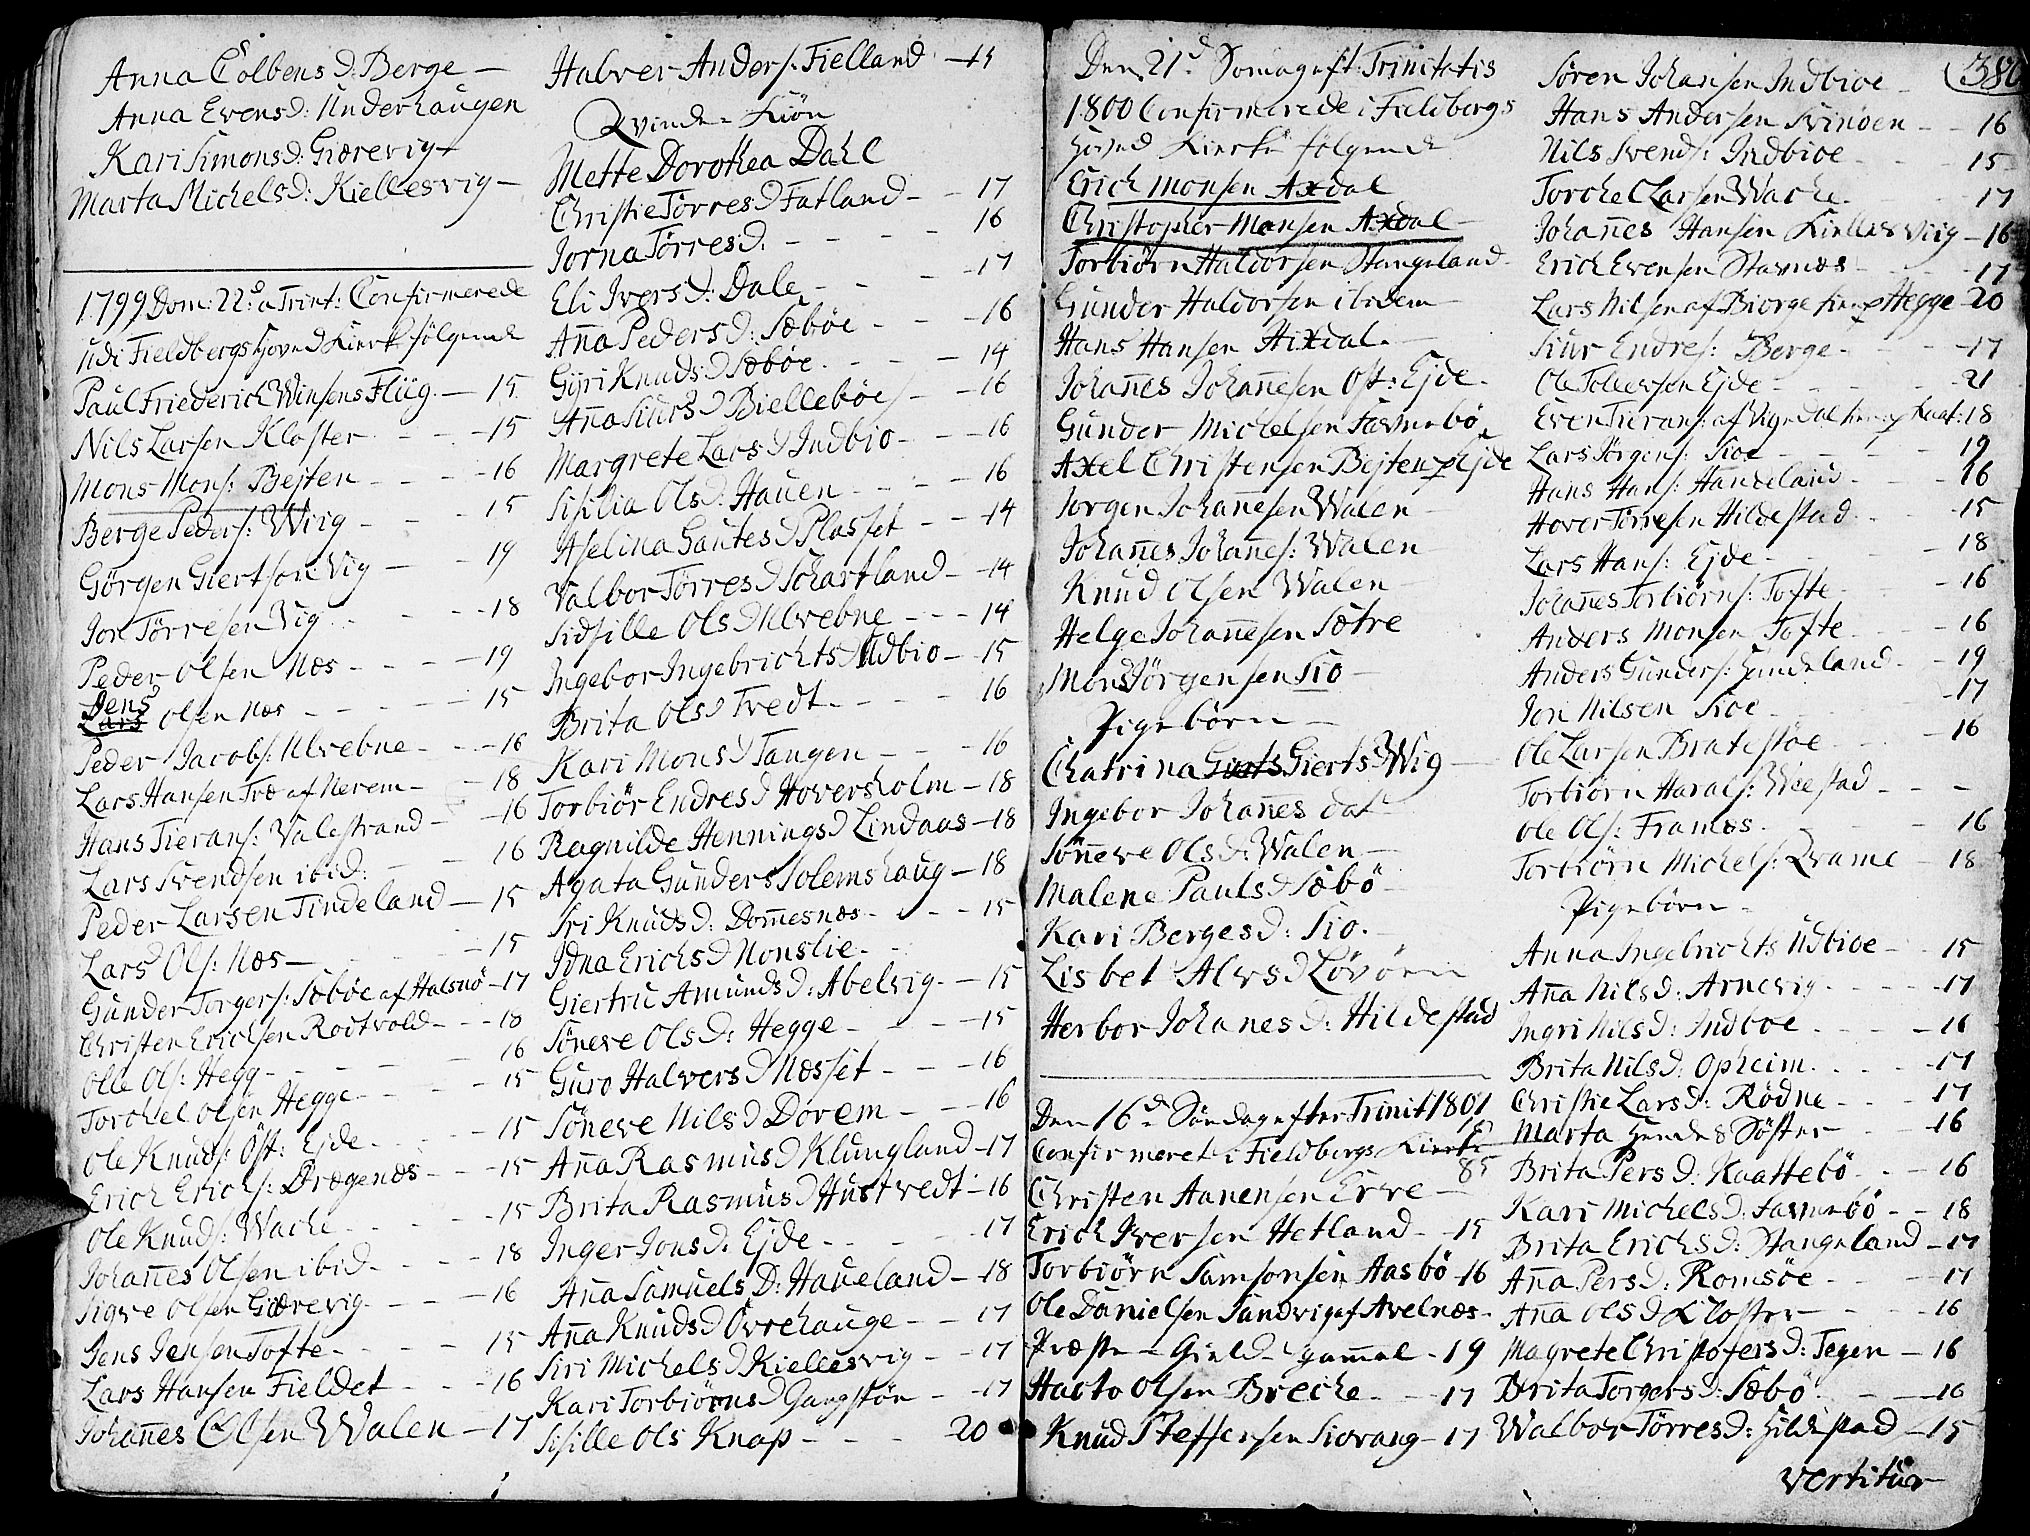 Anna Colbens D: Berge —
Anna Evens D: Underhaugen
Kari Simons D: Giærevig —
Marta Michels D: Kiellesvig —
1799 Dom: 22 a Trint: Confirmerede
udi Fieldbergs Hoved Kierke følgende
Paul Friederich Winsens Flüg. — 15
Nils Larsen Kloster - - - 15
Mons Mons: Bejten - - - 16
Berge Peders: Wiig - - - 15
Görgen Giertson Vig - - 19
Jon Törresen Vig - - - 18
Peder Olsen Næs - - - 19
Jens
Lars Olsen Næs - - - 15
Peder Jacobs: Ulvebne - - - 16
Lars Hansen Træ af Nerem - - 18
Hans Tierans: Valestrand - - 16
Lars Svendsen ibid: - - 16
Peder Larsen Tindeland — 15
Lars Ols: Næs — - - 15
Gunder Torgers: Sæböe af Halsnö - 17
Christen Erichsen Rodtvold - - - 18
Olle Ols: Hegg - - - 16
Torchel Olsen Hegge - - - 15
Ole Knuds: Öst: Ejde - - - 15
Erich Erichs: Drægenæs - - - 15
Ole Knuds: Wache - - - 15
Johannes Olsen ibid - - - 18
Sigve Olsen Giærevig - - - 16
Jens Jensen Tofte - - - 15
Lars Hansen Fieldet - - - 16
Johannes Olsen Walen — 17
Halver Anders. Fielland — 15
Qvinde-Kiön
Mette Dorothea Dahl
Christie Törres D Fatland - - 17
Jorna Törres D. - - - 16
Eli Ivers D: Dale - - - 17
Anna Peders D: Sæböe - - - 16
Gyri Knuds D Sæböe. - - - 14
Anna Siurs D Bielleböe - - 16
Margrete Lars D Indbio - - - 16
Sisilia Ols D: Hauen - - - 16
Aselina Gautes D Plasset - - 14
Valbor Törres D Schartland - - 14
Sidsille Ols D Ulvebne - - - 14
Ingebor Ingebrichts D Udbio - - 15
Brita Ols D Tvedt - - - 16
Kari Mons D Tangen - - - 16
Torbiör Endres D Hoversholm - 18
Ragnilde Hennings D Lindaas - 18
Agata Gunders Solemshaug - 18
Sri Knuds D: Dommesnæs - - - 15
Idna Erichs D Nonslie -
Giertru Amunds D: Abelvig - - 15
Söneve Ols D: Hegge - - - 15
Guro Halvers D Næsset - - - 16
Söneve Nils D Dörem - - - 16
Anna Rasmus D Klungland - 17
Brita Rasmus D Hustvedt - 16
Inger Jons D. Ejde - - - 17
Anna Samuels D: Haueland - 18
Anna Knuds D Övrehauge - - 17
Siri Michels D Kiellesvig - - 17
Kari Torbiörns D Gangstön - - 17
Sisille Ols Knap - - - 20
Den 21 Somag eft: Trinitatis
1800 Confirmerede i Fieldbergs
Hoved Kierke følgende
Erich Monsen Axdal
Christopher Monsen Axdal -
Torbiörn Haldorsen Stangeland -
Gunder Haldorsen ibidem -
Hans Hansen Aixdal. -
Johannes Johannesen Öst: Ejde -
Gunder Michelsen
Axel Christensen Bejten p Ejde
Jorgen Johannesen Walen -
Johannes Johannes: Walen -
Knud Olsen Walen -
Helge Johannesen Sætre
Mons Jörgensen Sio -
Pigebörn —
Chatrina Gierts D Wig —
Ingebor Johannes dat
Sönneve Ols D: Walen —
Malene Pauls D Sæbö -
Kari Berges D: Sio. -
Lisbet Alvs D Lövöen
Herbor Johanes D: Hildestad
Den 16 Söndag efter Trinit 1801
Confirmeret i Fieldbergs Kierke
85
Christen Aanensen Erve —
Erich Iversen Hetland - - 15
Torbiörn Samsonsen Aasbö - 16
Ole Danielsen Sandvig af Avelnæs -
Præste - Gield - gammel - 19
Hacto Olsen Breche - - 17
Knud Steffensen Siovang - 17
380
Sören Johansen Indbioe -
Hans Andersen Svinöen - - 16
Nils Svends: Indbioe - - - 15
Torchel Larsen Wache - - - 17
Johannes Hansen Kiellesviig - 16
Erich Evensen Stavnæs - - - 17
Lars Nilsen af Biorge Hegge 20
Siur Endres: Berge - - - 17
Ole Tollevsen Ejde - - - 21
Even Tierans: af Vigedal : 18
Lars Jörgens: Sioe - - - 19
Hans Hans: Handeland - - 16
Hover Törresen Hildestad - - 15
Lars Hans: Ejde - - - 18
Johannes Torbiörns: Tofte - - 16
Anders Monsen Tofte - - - 16
Anders Gunders: - - 19
Jon Nilsen Sioe - - - 17
Ole Larsen Bratestöe - - 16
Torbiörn Harals: - - -
Ole Ols: Framæs. - - - 16
Torbiörn Michels: Qvame - 18
Pigebörn -
Anna Ingebrichts Udbioe - - 15
Anna Nils D: Arnevig - - - 17
Ingri Nils D: Indboe - - - 16
Brita Nils D: Opheim. - - - 17
Christie Lars D: Rödne - - - 17
Marta hendes Söster - - - 16
Brita Pers D: Kaattebö - - - 16
Kari Michels D: - - 18
Brita Erichs D: Stangeland - 17
Anna Pers D: Romsöe - - - 17
Anna Ols D Kloster - - - 16
Magrete Christofers D: Tegen - 16
Brita Torgers D: Sæbö - - - 16
Walbor Törres D: Hildestad - 15
Vertitur